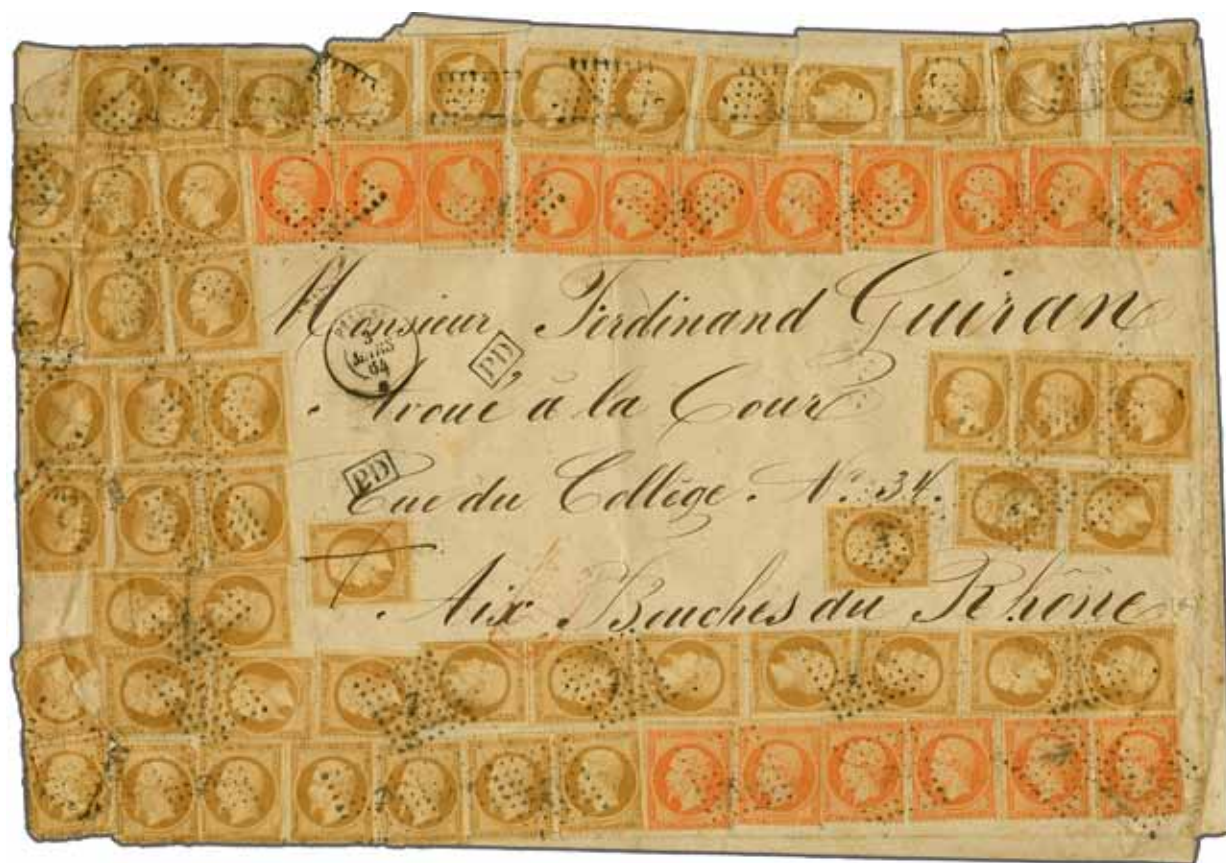 Monsieur Ferdinand Guiran
Avoué à la Cour
Rue du Collège. N.º 34.
Aix Bouches du Rhône
3
MARS
64
PD
PD